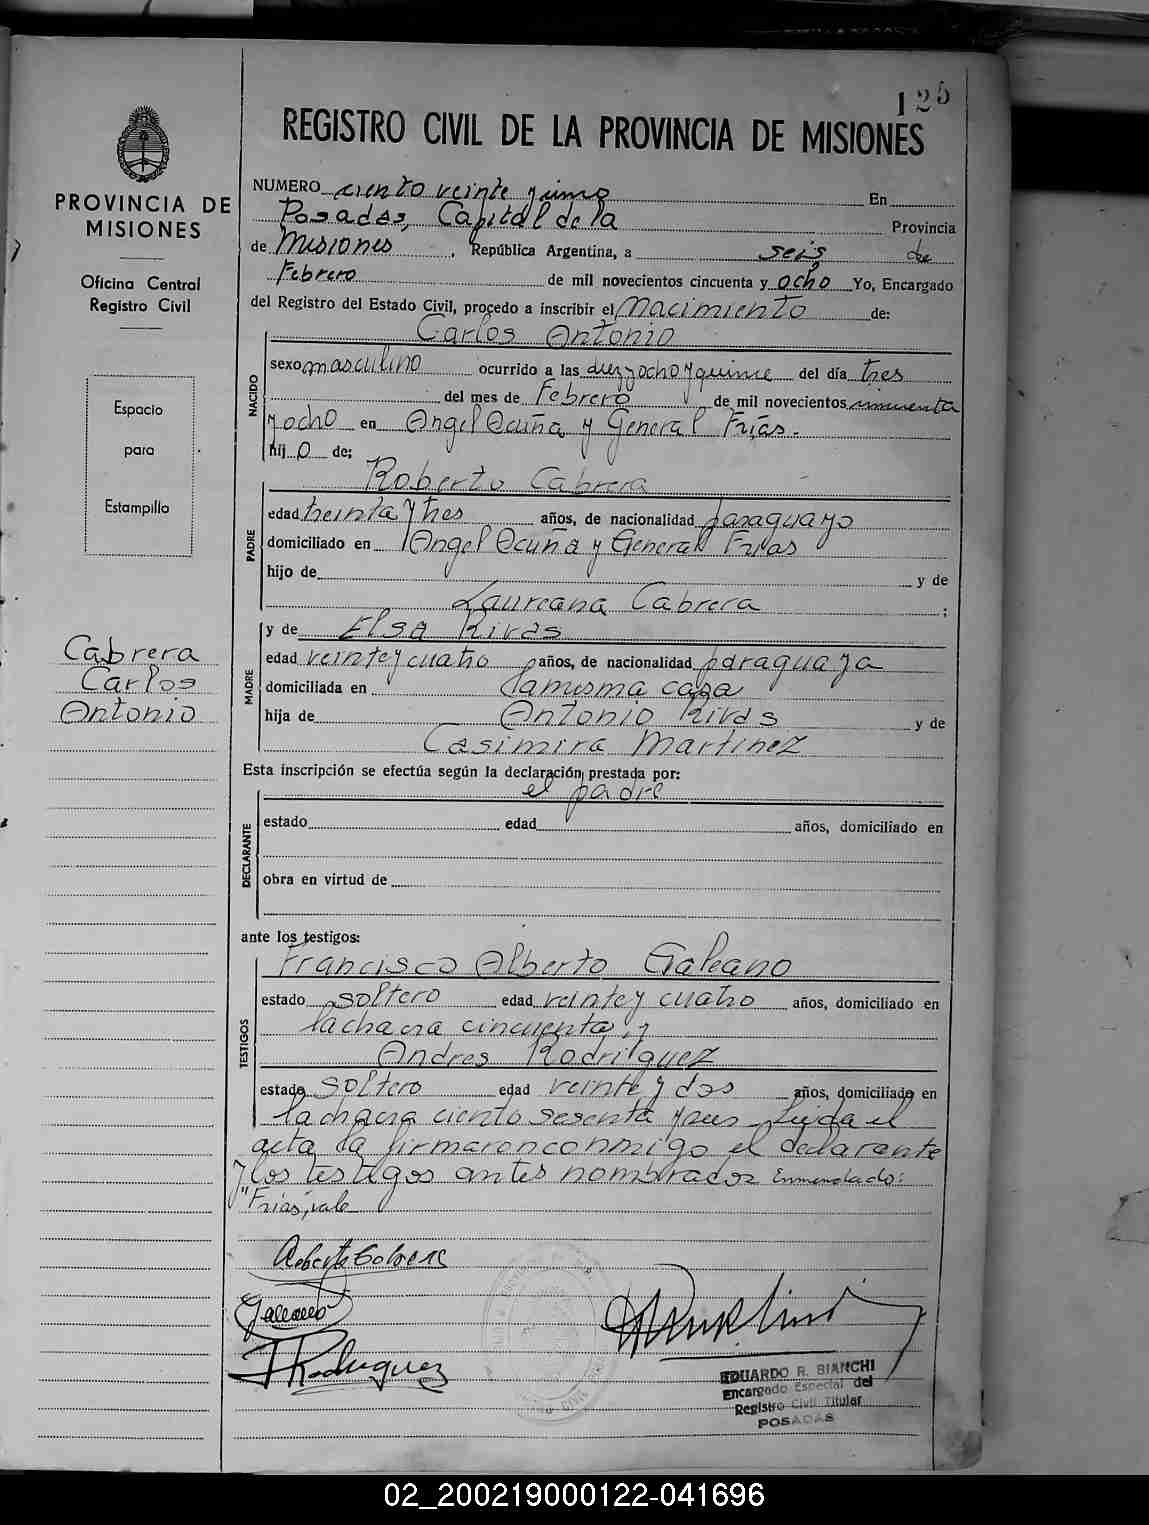 125
REGISTRO CIVIL DE LA PROVINCIA DE MISIONES
PROVINCIA DE
MISIONES
Oficina Central
Registro Civil
Espacio
para
Estampilla
Cabrera
Carlos
Antonio
NUMERO ciento veinte y uno En
Posadas, Capital de la Provincia
de Misiones, República Argentina, a seis de
Febrero de mil novecientos cincuenta y ocho Yo, Encargado
del Registro del Estado Civil, procedo a inscribir el Nacimiento de:
Carlos Antonio
NACIDO
sexo masculino ocurrido a las diez y ocho y quince del día tres
del mes de Febrero de mil novecientos cincuenta
y ocho en Angel Acuña y General Frías.
hij o de:
Roberto Cabrera
PADRE
edad treinta y tres años, de nacionalidad paraguayo
domiciliado en Angel Acuña y General Frias
hijo de y de
Laureana Cabrera ;
y de Elsa Rivas
MADRE
edad veinte y cuatro años, de nacionalidad paraguaya
domiciliada en la misma casa
hija de Antonio Rivas y de
Casimira Martinez
Esta inscripción se efectúa según la declaración prestada por:
el padre
DECLARANTE
estado edad años, domiciliado en
obra en virtud de
ante los testigos:
Francisco Alberto Galeano
TESTIGOS
estado soltero edad veinte y cuatro años, domiciliado en
la chacra cincuenta, y
Andres Rodriguez
estado soltero edad veinte y dos años, domiciliado en
la chacra ciento sesenta y Leida el
acta la firmaron conmigo el declarante
y los testigos antes nombrados Enmendado:
"Frías", vale
Roberto Cabrera
Galeano
Rodriguez
EDUARDO R. BIANCHI
Encargado Especial del
Registro Civil Titular
POSADAS
02_200219000122-041696